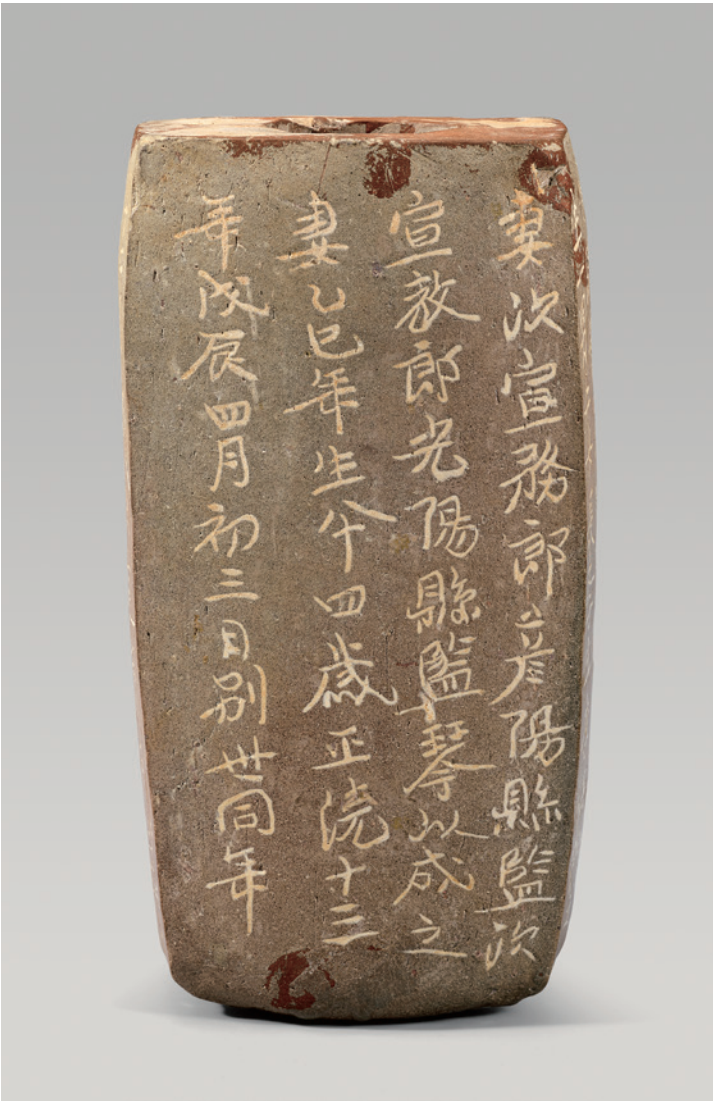 妻次宣務郎彦陽縣監次
宣教郎光陽縣監琴以成之
妻乙巳年生四歲正統十三
年戊辰四月初三日別世同年